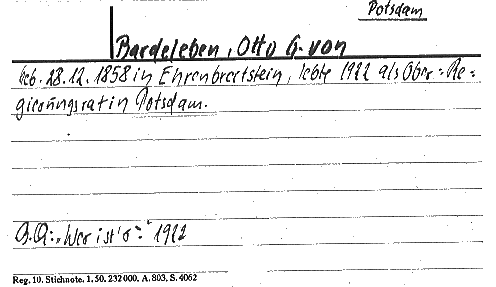 Potsdam
Bardeleben, Otto G. von
geb. 28.12.1858 in Ehrenbreitstein, lebte 1922 als Ober-Re-
gierungsrat in Potsdam.
G.A: „Wer ist's" 1922
Reg. 10. Stichnote. 1. 50. 232000. A. 803. S. 4062